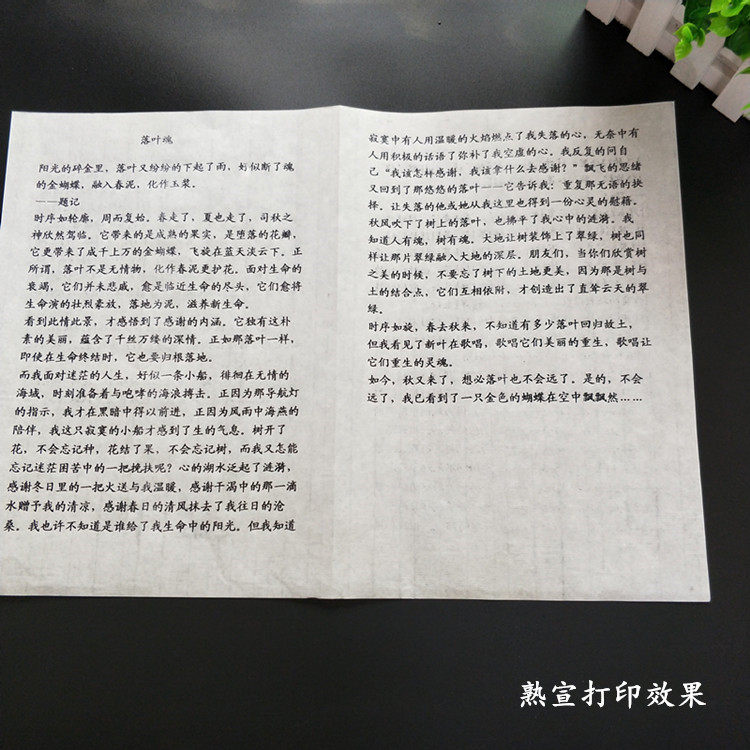 落叶魂
阳光的碎金里，落叶又纷纷的下起了雨，好似断了魂
的金蝴蝶，融入春泥，化作玉浆。
——题记
时序如轮廓，周而复始。春走了，夏也走了，司秋之
神欣然驾临。它带来的是成熟的果实，是堕落的花瓣，
它更带来了成千上万的金蝴蝶，飞旋在蓝天淡云下。正
所谓，落叶不是无情物，化作春泥更护花。面对生命的
衰竭，它们并未悲戚，愈是临近生命的尽头，它们愈将
生命演的壮烈豪放，落地为泥，滋养新生命。
看到此情此景，才感悟到了感谢的内涵。它独有这朴
素的美丽，蕴含了千丝万缕的深情。正如那落叶一样，
即使在生命终结时，它也要归根落地。
而我面对迷茫的人生，好似一条小船，徘徊在无情的
海域，时刻准备着与咆哮的海浪搏击。正因为那导航灯
的指示，我才在黑暗中得以前进，正因为风雨中海燕的
陪伴，我这只寂寞的小船才感到了生的气息。树开了
花，不会忘记种，花结了果，不会忘记树，而我又怎能
忘记迷茫困苦中的一把挽扶呢？心的湖水泛起了涟漪，
感谢冬日里的一把火送与我温暖，感谢干渴中的那一滴
水赠予我的清凉，感谢春日的清风抹去了我往日的沧
桑。我也许不知道是谁给了我生命中的阳光。但我知道
寂寞中有人用温暖的火焰燃点了我失落的心，无奈中有
人用积极的话语了弥补了我空虚的心。我反复的问自
己“我该怎样感谢，我该拿什么去感谢？”飘飞的思绪
又回到了那悠悠的落叶——它告诉我：重复那无语的抉
择。让失落的他或她从我这里也得到一份心灵的慰藉。
秋风吹下了树上的落叶，也拂平了我心中的涟漪。我
知道人有魂，树有魂。大地让树装饰上了翠绿，树也同
样让那片翠绿融入大地的深层。朋友们，当你们欣赏树
之美的时候，不要忘了树下的土地更美，因为那是树与
土的结合点，它们互相依附，才创造出了直耸云天的翠
绿。
时序如旋，春去秋来，不知道有多少落叶回归故土，
但我看见了新叶在歌唱，歌唱它们美丽的重生，歌唱让
它们重生的灵魂。
如今，秋又来了，想必落叶也不会远了。是的，不会
远了，我已看到了一只金色的蝴蝶在空中飘飘然……
熟宣打印效果